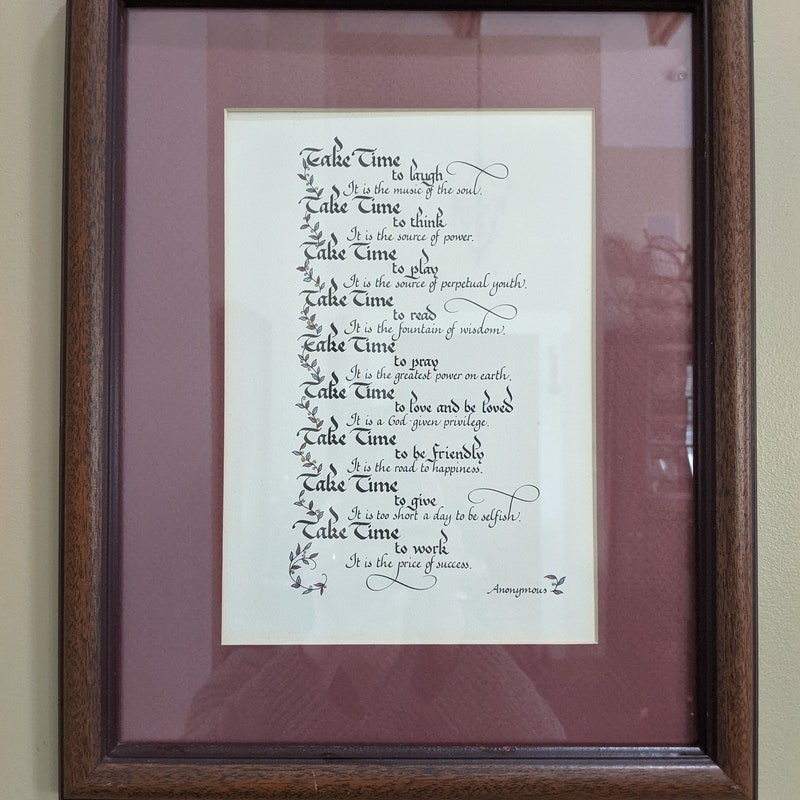 Take Time
to laugh
It is the music of the soul.
Take Time
to think
It is the source of power.
Take Time
to play
It is the source of perpetual youth.
Take Time
to read
It is the fountain of wisdom.
Take Time
to pray
It is the greatest power on earth.
Take Time
to love and be loved
It is a God-given privilege.
Take Time
to be friendly
It is the road to happiness.
Take Time
to give
It is too short a day to be selfish.
Take Time
to work
It is the price of success.
Anonymous